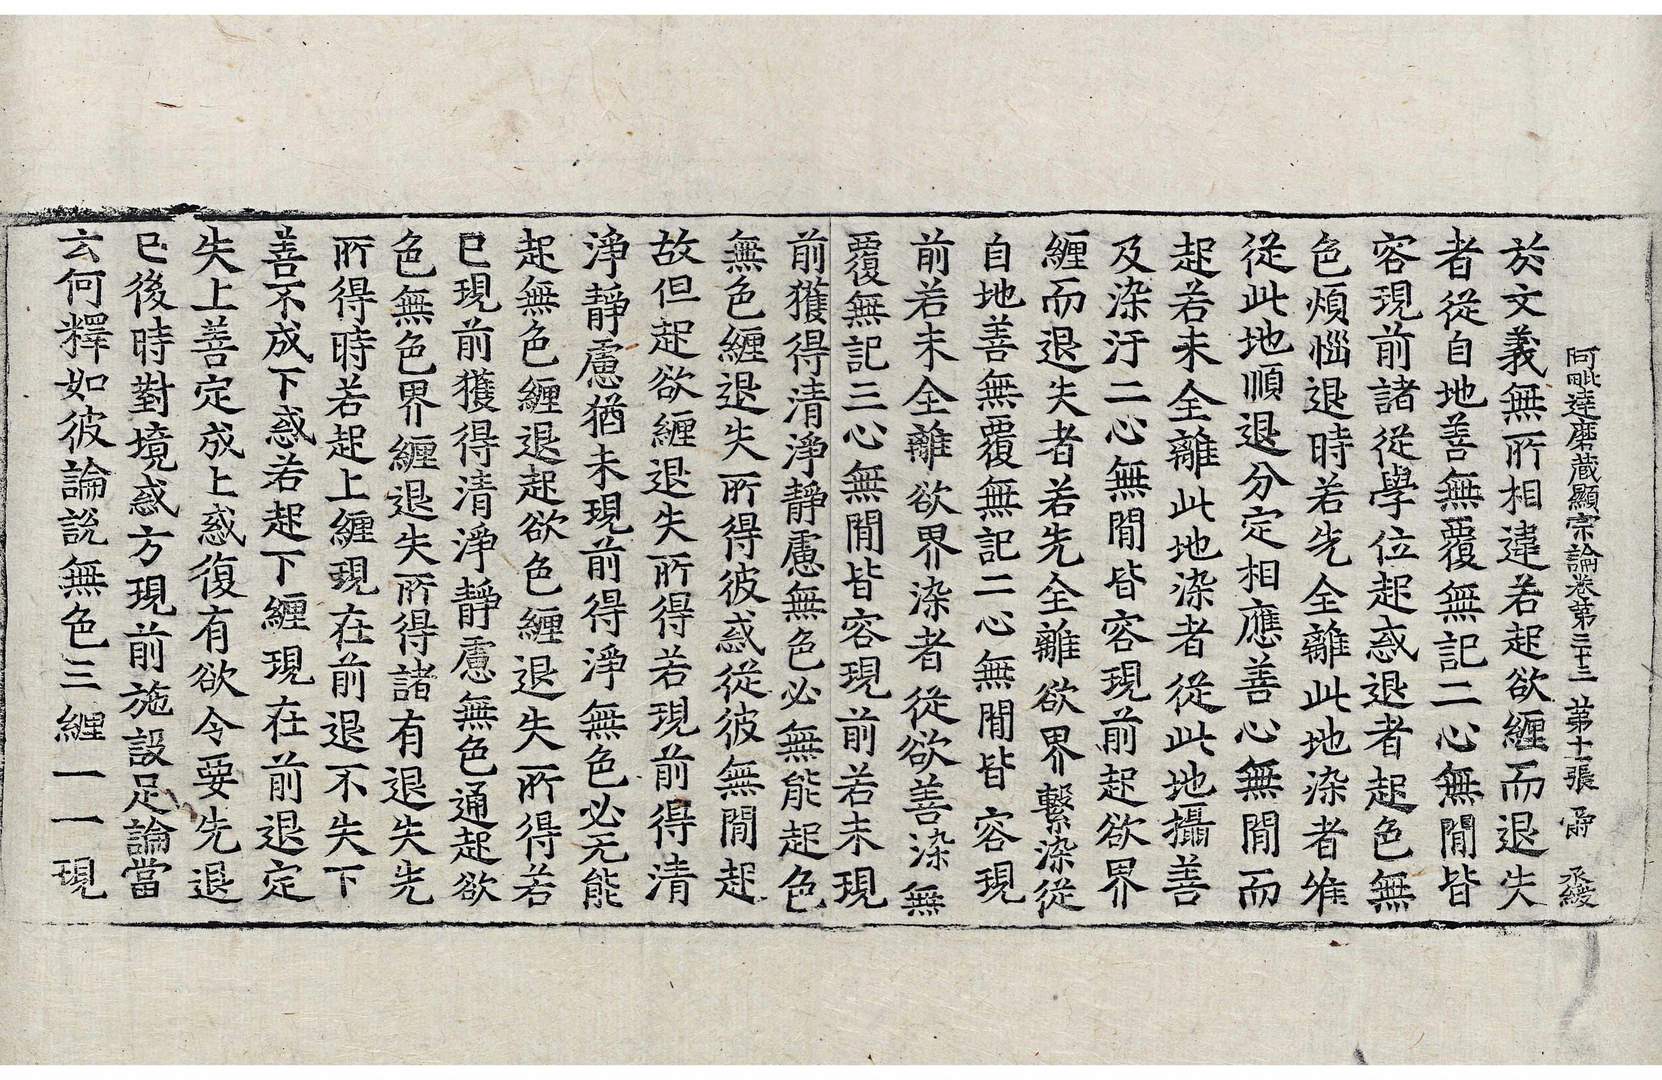 阿毗達磨藏顯宗論卷第二十三 第十二張 承綬
於文義無所相違若起欲纏而退失
者從自地善無覆無記二心無閒皆
容現前諸從學位起惑退者起色無
色煩惱退時若先全離此地染者唯
從此地順退分定相應善心無閒而
起若未全離此地染者從此地攝善
及染汙二心無閒皆容現前起欲界
纏而退失者若先全離欲界繫染從
自地善無覆無記二心無閒皆容現
前若未全離欲界染者從欲善染無
覆無記三心無閒皆容現前若未現
前獲得清淨靜慮無色必無能起色
無色纏退失所得彼惑從彼無閒起
故但起欲纏退失所得若現前得清
淨靜慮猶未現前得淨無色必无能
起無色纏退起欲色纏退失所得若
已現前獲得清淨靜慮無色通起欲
色無色界纏退失所得諸有退失先
所得時若起上纏現在前退不失下
善不成下惑若起下纏現在前退定
失上善定成上惑復有欲令要先退
已後時對境惑方現前施設足論當
云何釋如彼論說無色三纏一一現